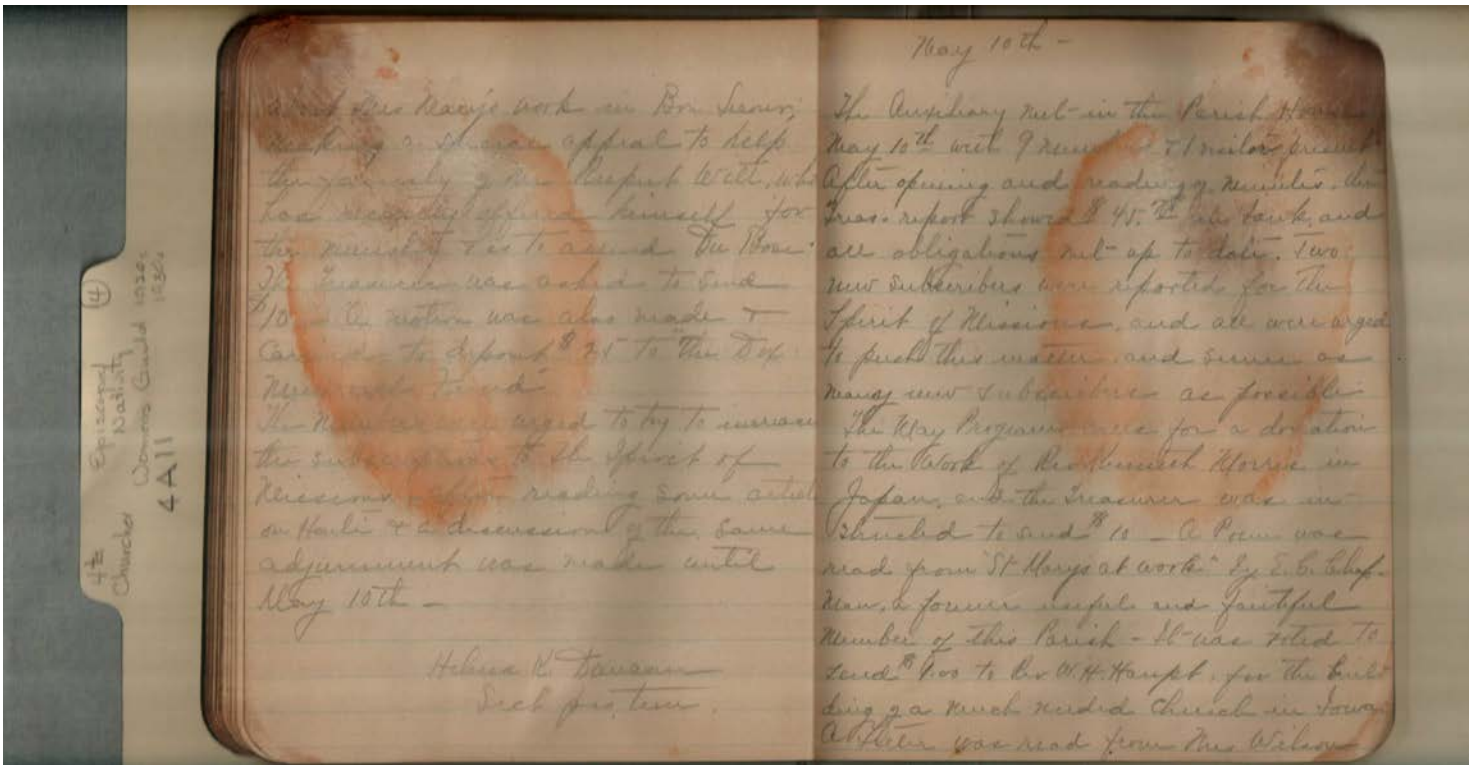 4th Episcopal (4)
Churches Nativity
Womens Guild 1920s
1930s
4A11
about Mrs work in Bon Secour,
making a special appeal to help
the family of Mr who
has recently offered himself for
the ministry & is to attend Du Bose.
The Treasurer was asked to send
$10 A motion was also made &
carried to deposit $25 to the
Memorial Fund.
The Members were urged to try to increase
the subscriptions to the Spirit of
Missions. After reading some article
on Haiti & a discussion of the same
adjournment was made until
May 10th -
K.
Sect pro. tem.
May 10th -
The Auxiliary met in the Parish House
May 10th with 9 members & 1 visitor present
After opening and reading of minutes, the
Treas. report showed $45. in bank, and
all obligations met up to date. Two
new subscribers were reported for the
Spirit of Missions, and all were urged
to push this matter and secure as
many new subscribers as possible
The May Program was for a donation
to the Work of Morris in
Japan, and the Treasurer was in-
structed to send $10 - A Poem was
read from "St Marys at work" by E. C. Chap-
man, a former useful and faithful
member of this Parish - It was voted to
send $ to Rev W. H. Haupt. for the buil-
ding of a much needed Church in Iowa
A letter was read from Mrs Wilson